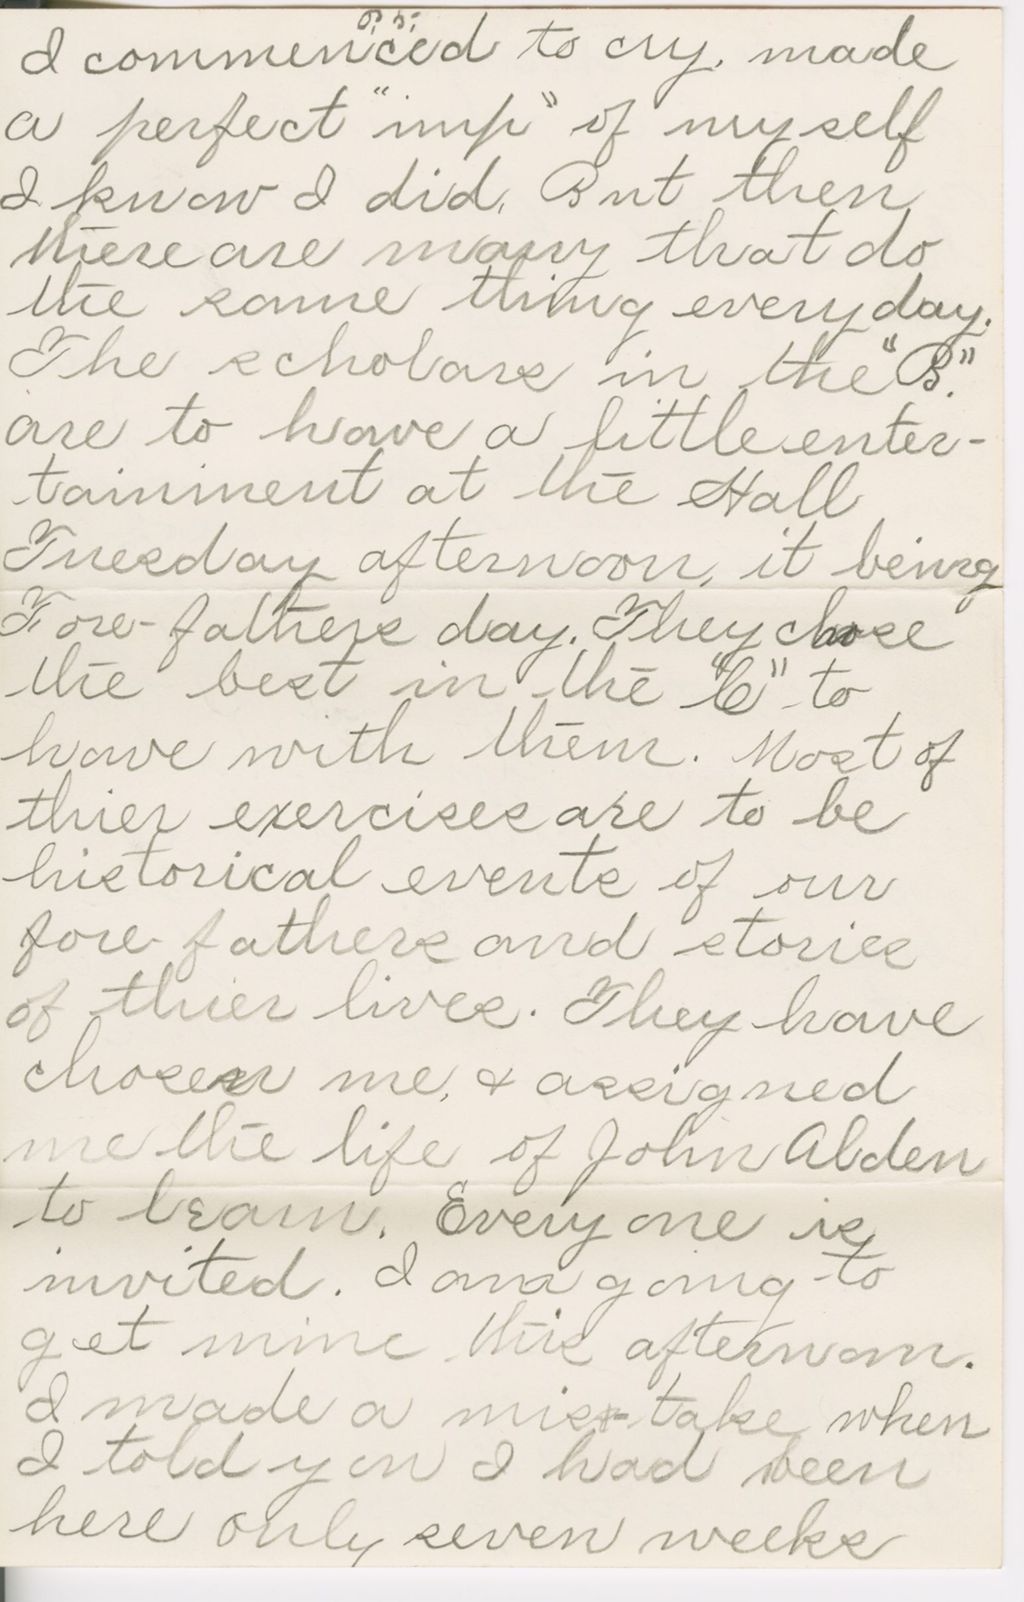 I commenced to cry, made
a perfect "imp" of myself
I know I did, But then
there are many that do
the same thing every day.
The scholars in the "B."
are to have a little enter-
tainment at the Hall
Tuesday afternoon, it being
Fore-fathers day. They chose
the best in the "C" to
have with them. Most of
thier exercises are to be
historical events of our
fore-fathers and stories
of thier lives. They have
chosen me, & assigned
me the life of John Alden
to learn. Every one is
invited. I am going to
get mine this afternoon.
I made a mis-take when
I told you I had been
here only seven weeks